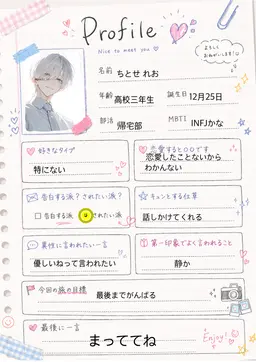 Profile
Nice to meet you
よろしく
おねがいします!
名前 ちとせ れお
年齢 高校三年生 誕生日 12月25日
部活 帰宅部 MBTI INFJかな
好きなタイプ
特にない
恋愛すると○○です
恋愛したことないから
わかんない
告白する派?されたい派?
告白する派 されたい派
キュンとする仕草
話しかけてくれる
異性に言われたい一言
優しいねって言われたい
第一印象でよく言われること
静か
今回の旅の目標
最後までがんばる
最後に一言
まっててね
Enjoy!